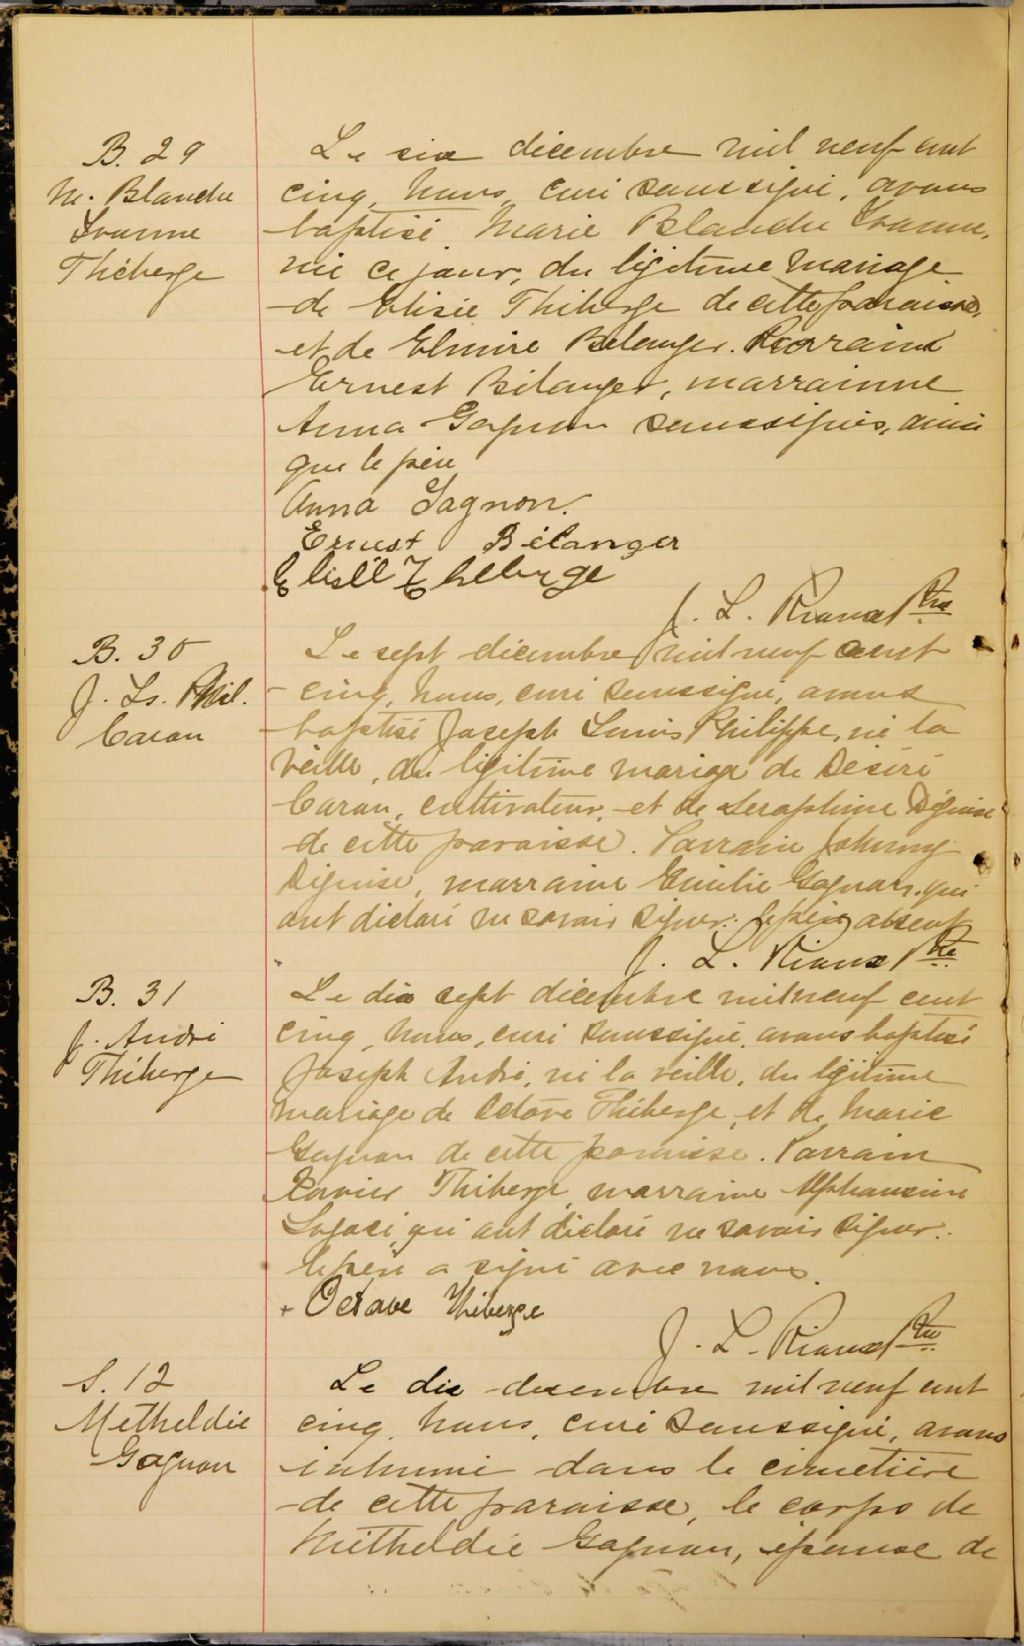 B. 29
M. Blanche
Yvonne
Théberge
Le six décembre mil neuf cent
cinq, nous, curé soussigné, avons
baptisé Marie Blanche Yvonne,
née ce jour, du légitime mariage
de Elisée Théberge de cette paroisse,
et de Elmire Bélanger. Parrain
Ernest Bélanger, marrainne
Anna Gagnon soussignés, ainsi
que le père
Anna Gagnon.
Ernest Bélanger
Elisée Théberge
J. L. Rioux Ptre
B. 30
J. Ls. Phil.
Caron
Le sept décembre mil neuf cent
cinq, nous, curé soussigné, avons
baptisé Joseph Louis Philippe, né la
veille, du légitime mariage de Désiré
Caron, cultivateur, et de Seraphine Déguise
de cette paroisse. Parrain Johnny
Déguise, marraine Emilie Gagnon qui
ont déclaré ne savoir signer. le père absent
J. L. Rioux Ptre
B. 31
J. André
Théberge
Le dix sept décembre mil neuf cent
cinq, nous, curé soussigné, avons baptisé
Joseph André, né la veille, du légitime
mariage de Octave Théberge, et de Marie
Gagnon de cette paroisse. Parrain
Xavier Théberge, marraine Alphonsine
qui ont déclaré ne savoir signer.
le père a signé avec nous.
+ Octave Théberge
J. L. Rioux Ptre
S. 12
Metheldie
Gagnon
Le dix decembre mil neuf cent
cinq, nous, curé soussigné, avons
inhumé dans le cimetière
de cette paroisse, le corps de
Metheldie Gagnon, épouse de